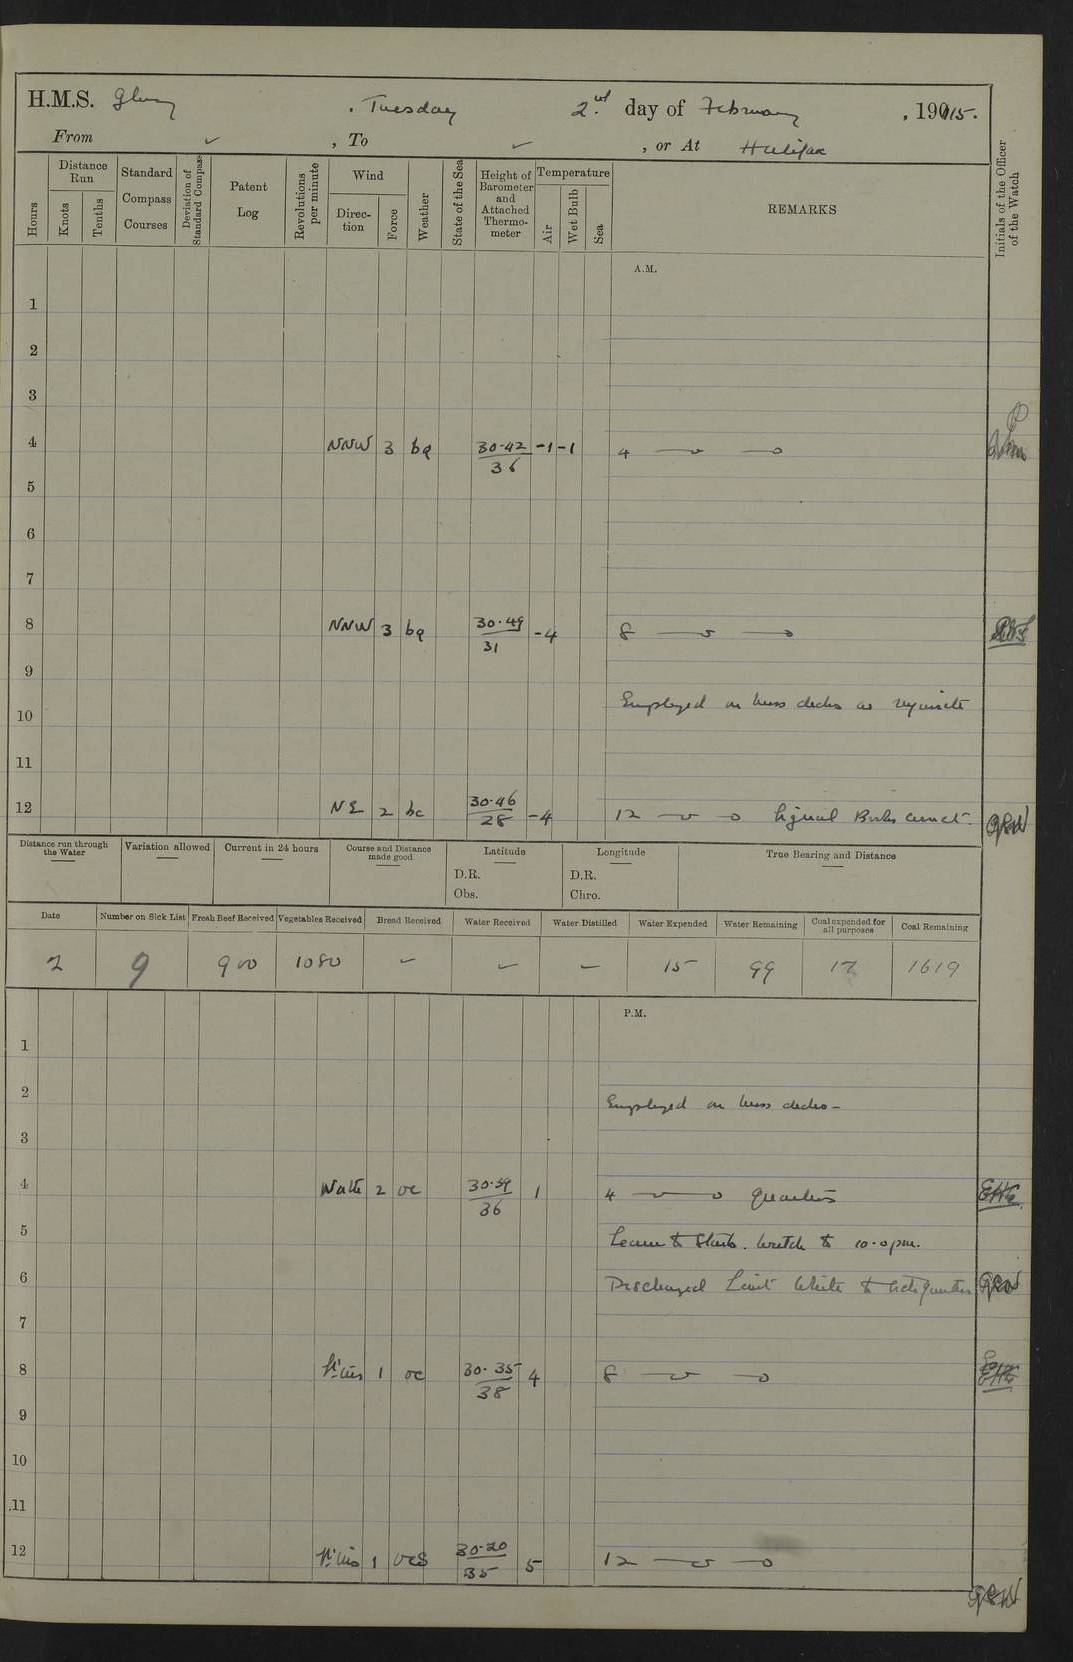 H.M.S. Glory, Tuesday 2nd day of February, 1915.
From ✓, To ✓, or At Halifax
Hours
Distance Run
Knots
Tenths
Standard Compass Courses
Deviation of Standard Compass
Patent Log
Revolutions per minute
Wind
Direction
Force
Weather
State of the Sea
Height of Barometer and Attached Thermometer
Temperature
Air
Wet Bulb
Sea
REMARKS
Initials of the Officer of the Watch
A.M.
1
2
3
4 NNW 3 bq 30.42 36 -1 -1 4
5
6
7
8 NNW 3 bq 30.49 31 -4 8
9
Employed on mess decks as requisite
10
11
12 NE 2 bc 30.46 28 -4 12 Signal Books correct.
Distance run through the Water
Variation allowed
Current in 24 hours
Course and Distance made good
Latitude
D.R.
Obs.
Longitude
D.R.
Chro.
True Bearing and Distance
Date Number on Sick List Fresh Beef Received Vegetables Received Bread Received Water Received Water Distilled Water Expended Water Remaining Coal expended for all purposes Coal Remaining
2 9 900 1080 – – – 15 99 17 1619
P.M.
1
2
Employed on mess decks –
3
4 2 oc 30.39 36 1 4 Quarters
5
Leave to Starb. Watch to 10.0 pm.
6 Discharged Lieut White to Headquarters
7
8 1 oc 30.35 38 4 8
9
10
11
12 1 ocs 30.20 35 5 12